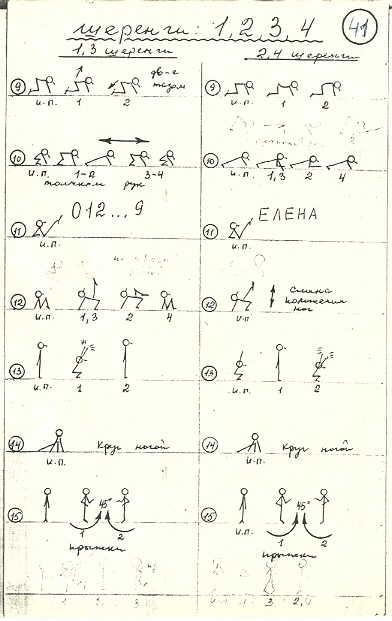 шеренги: 1, 2, 3, 4
41
1, 3 шеренги
2, 4 шеренги
9
дв-е
тазом
и.п. 1 2
9
и.п. 1 2
10
и.п. 1-2 3-4
толчком рук
10
и.п. 1,3 2 4
11
012...9
и.п.
11
ЕЛЕНА
и.п.
12
и.п. 1,3 2 4
12
смена
положения
ног
и.п.
13
и.п. 1 2
13
и.п. 1 2
14
круг ногой
и.п.
14
круг ногой
и.п.
15
45°
1 2
прыжки
15
45°
и.п. 1 2
прыжки